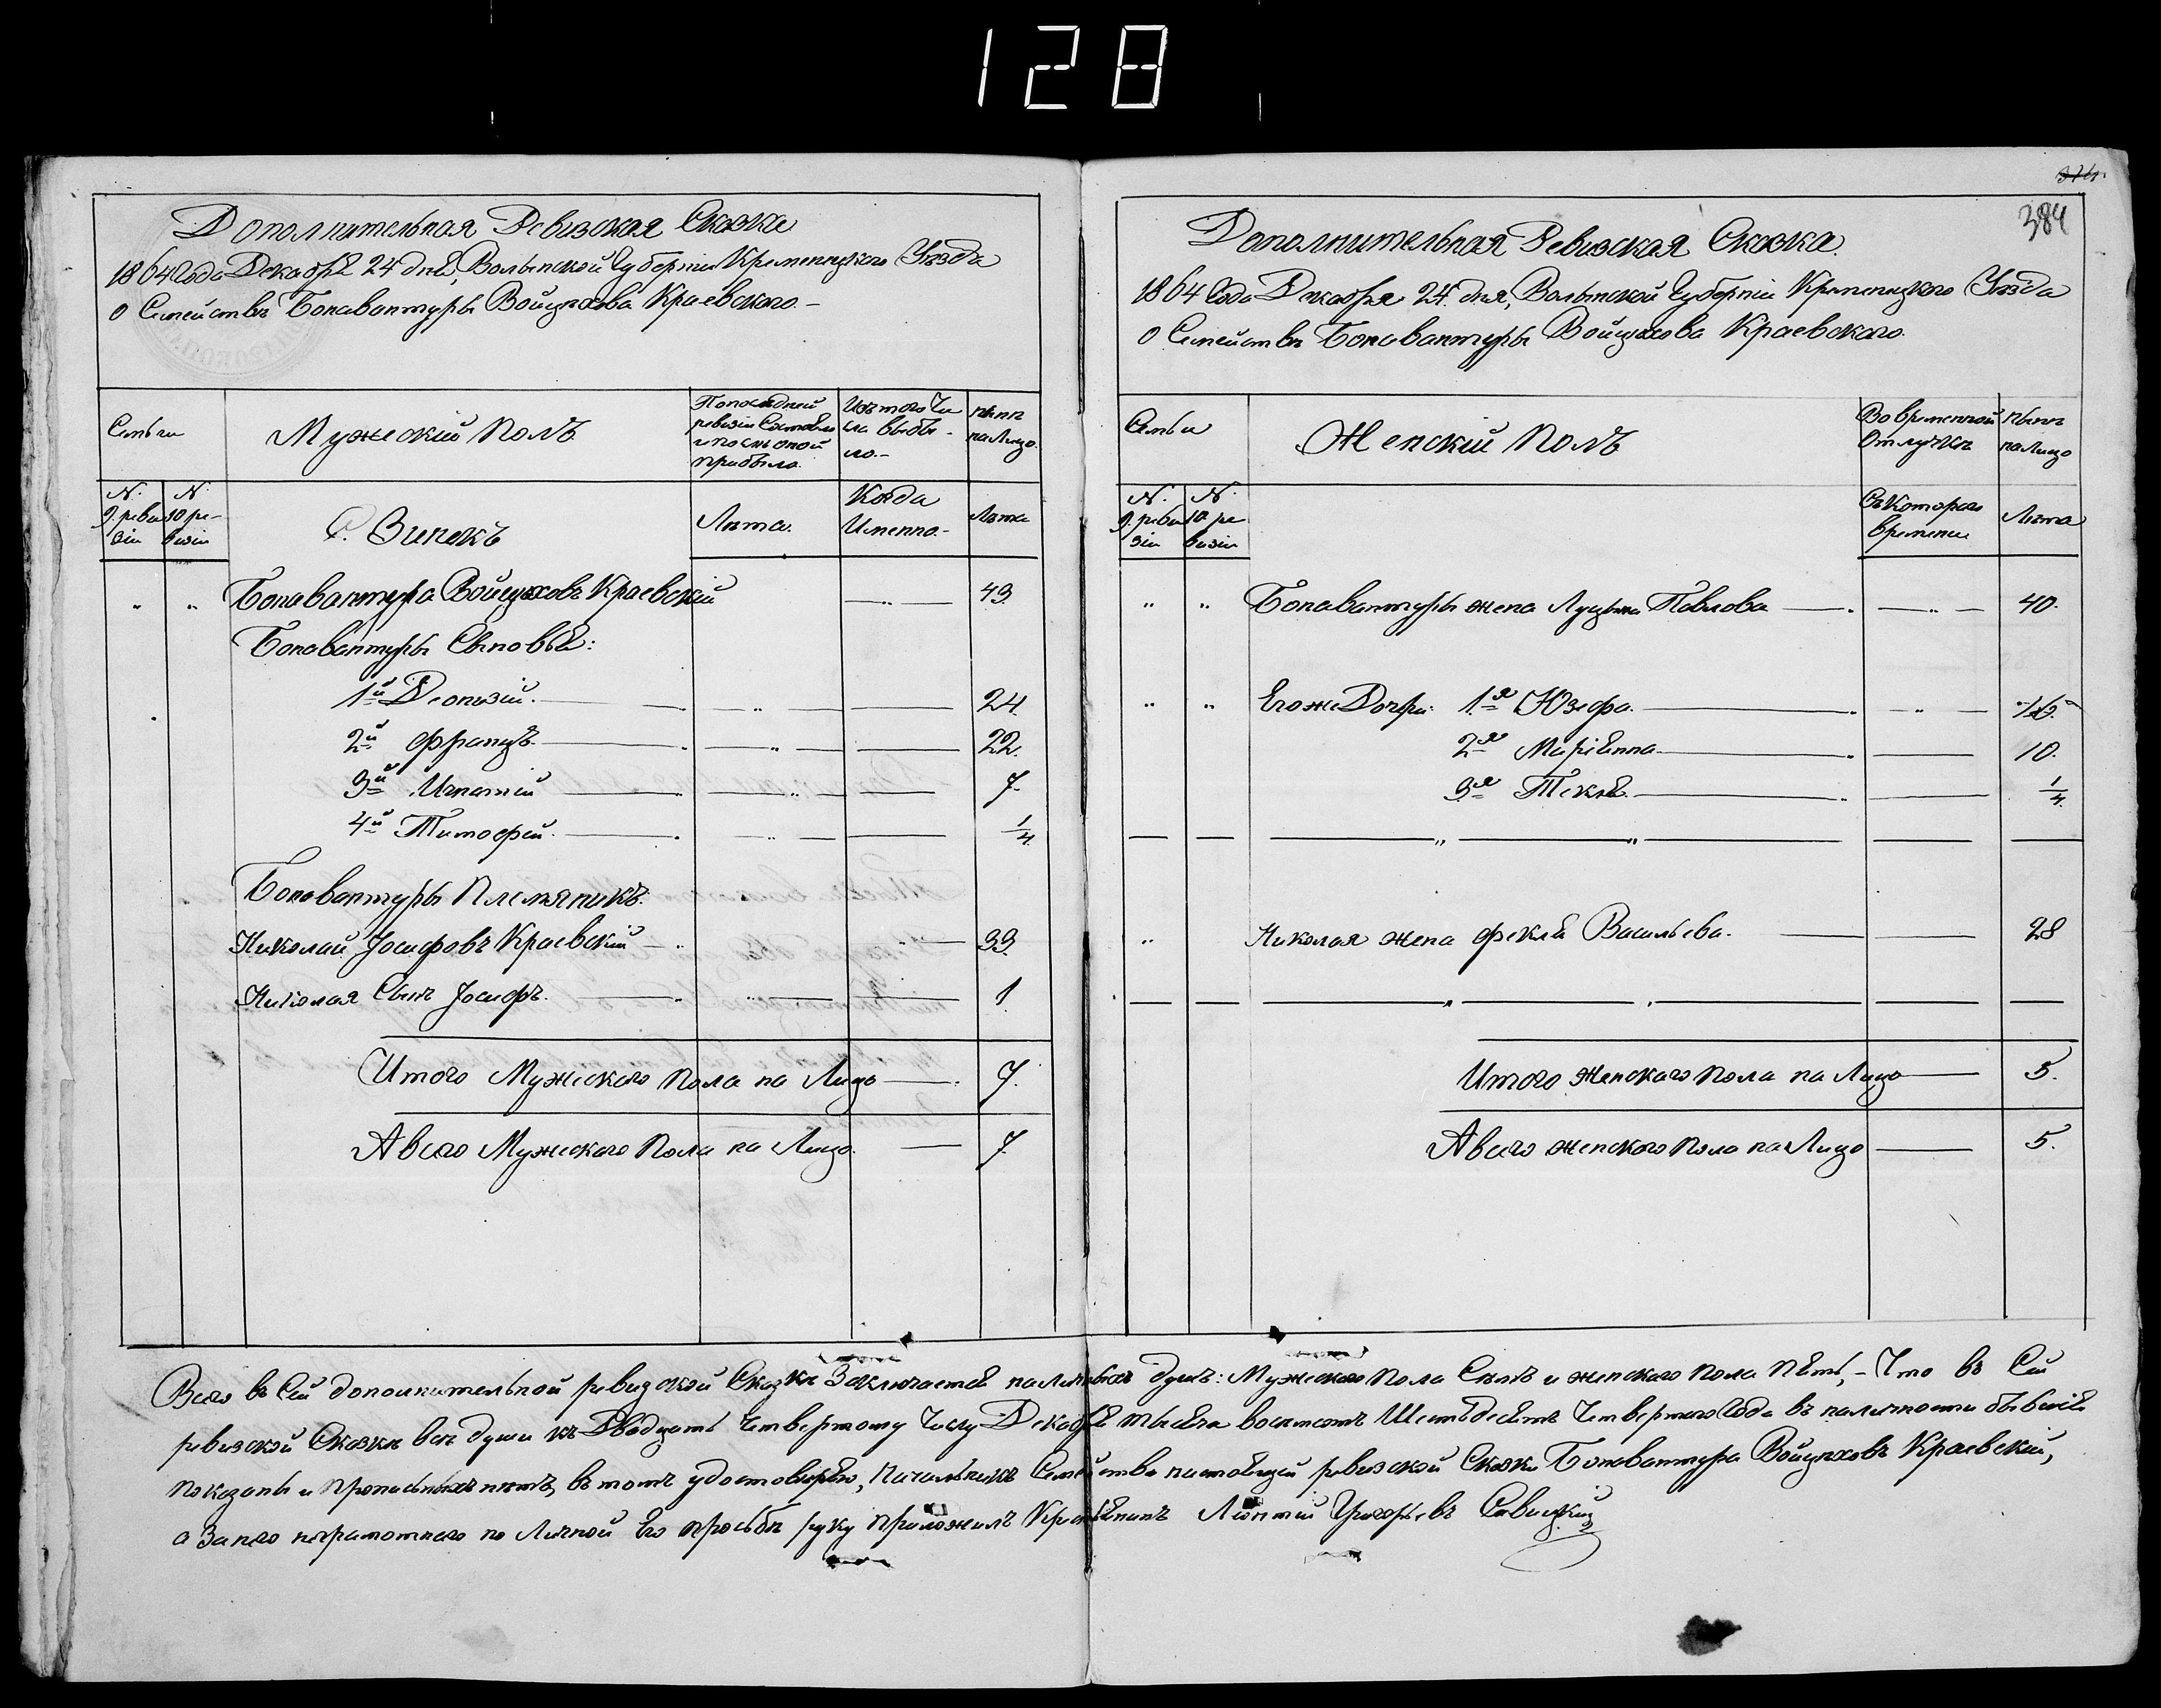 128
384
Дополнительная Ревизская Сказка
1864 Года Декабря 24 дня, Волынской Губерніи Кременецкого Уѣзда
о Семействѣ Бонавантуры Войцѣхова Краевского.-
Семьи
Мужескій Полъ
По последней ревизіи Состояло и послѣ оной прибыло.
Изъ того Числа выбыло.-
нынѣ на Лицо.
N. 9. ревизіи
N. 10 ревизіи
С. Зинекъ
Лѣта.
Когда Именно.-
Лѣта
" " Бонавантура Войцѣховъ Краевскій — " — 49.
Бонавантуры Сыновья:
1й Деонизій. — " — 24.
2й Францъ. — " — 22.
3й Игнатій — " — 7.
4й Тимофей. — " — 1/4.
Бонавантуры Племяникъ:
Николай Іосифовъ Краевскій — " — 33.
Николая Сынъ Іосифъ. — " — 1.
Итого Мужеского Пола на Лицо — 7.
А всего Мужеского Пола на Лицо. — 7.
Дополнительная Ревизская Сказка.
1864 Года Декабря 24. дня, Волынской Губерніи Кременецкого Уѣзда
о Семействѣ Бонавантуры Войцѣхова Краевского.
Семьи
Женскій Полъ
Во временной Отлучкѣ
нынѣ на Лицо
N. 9. ревизіи
N. 10 ревизіи
Съ Которого времени
Лѣта
" " Бонавантуры жена Луцыя Павлова — " — 40.
" " Его же Дочери: 1я Юзефа. — " — 16.
2я Маріянна — 10.
3я Текля. — 1/4.
" Николая жена Фекла Васильева. — 28
Итого Женского Пола на Лицо — 5.
А всего женского Пола на Лицо — 5.
Всего въ Сей дополнительной ревизской Сказкѣ Заключается наличныхъ душъ: Мужеского Пола Семь и женского Пола Пять,- Что въ Сей
ревизской Сказкѣ всѣ души къ Двадцать Четвертому Числу Декабря тысяча восемсотъ Шестьдесятъ Четвертого Года въ наличности бывшіе
показаны и прописныхъ нѣтъ, въ томъ удостовѣряю, Начальникъ Семейства настоящей ревизской Сказки Бонавантура Войцѣховъ Краевскій,
а За него неграмотного по Личной Его просьбѣ руку приложилъ Крестьянинъ Леонтій Григорьевъ Савицкій